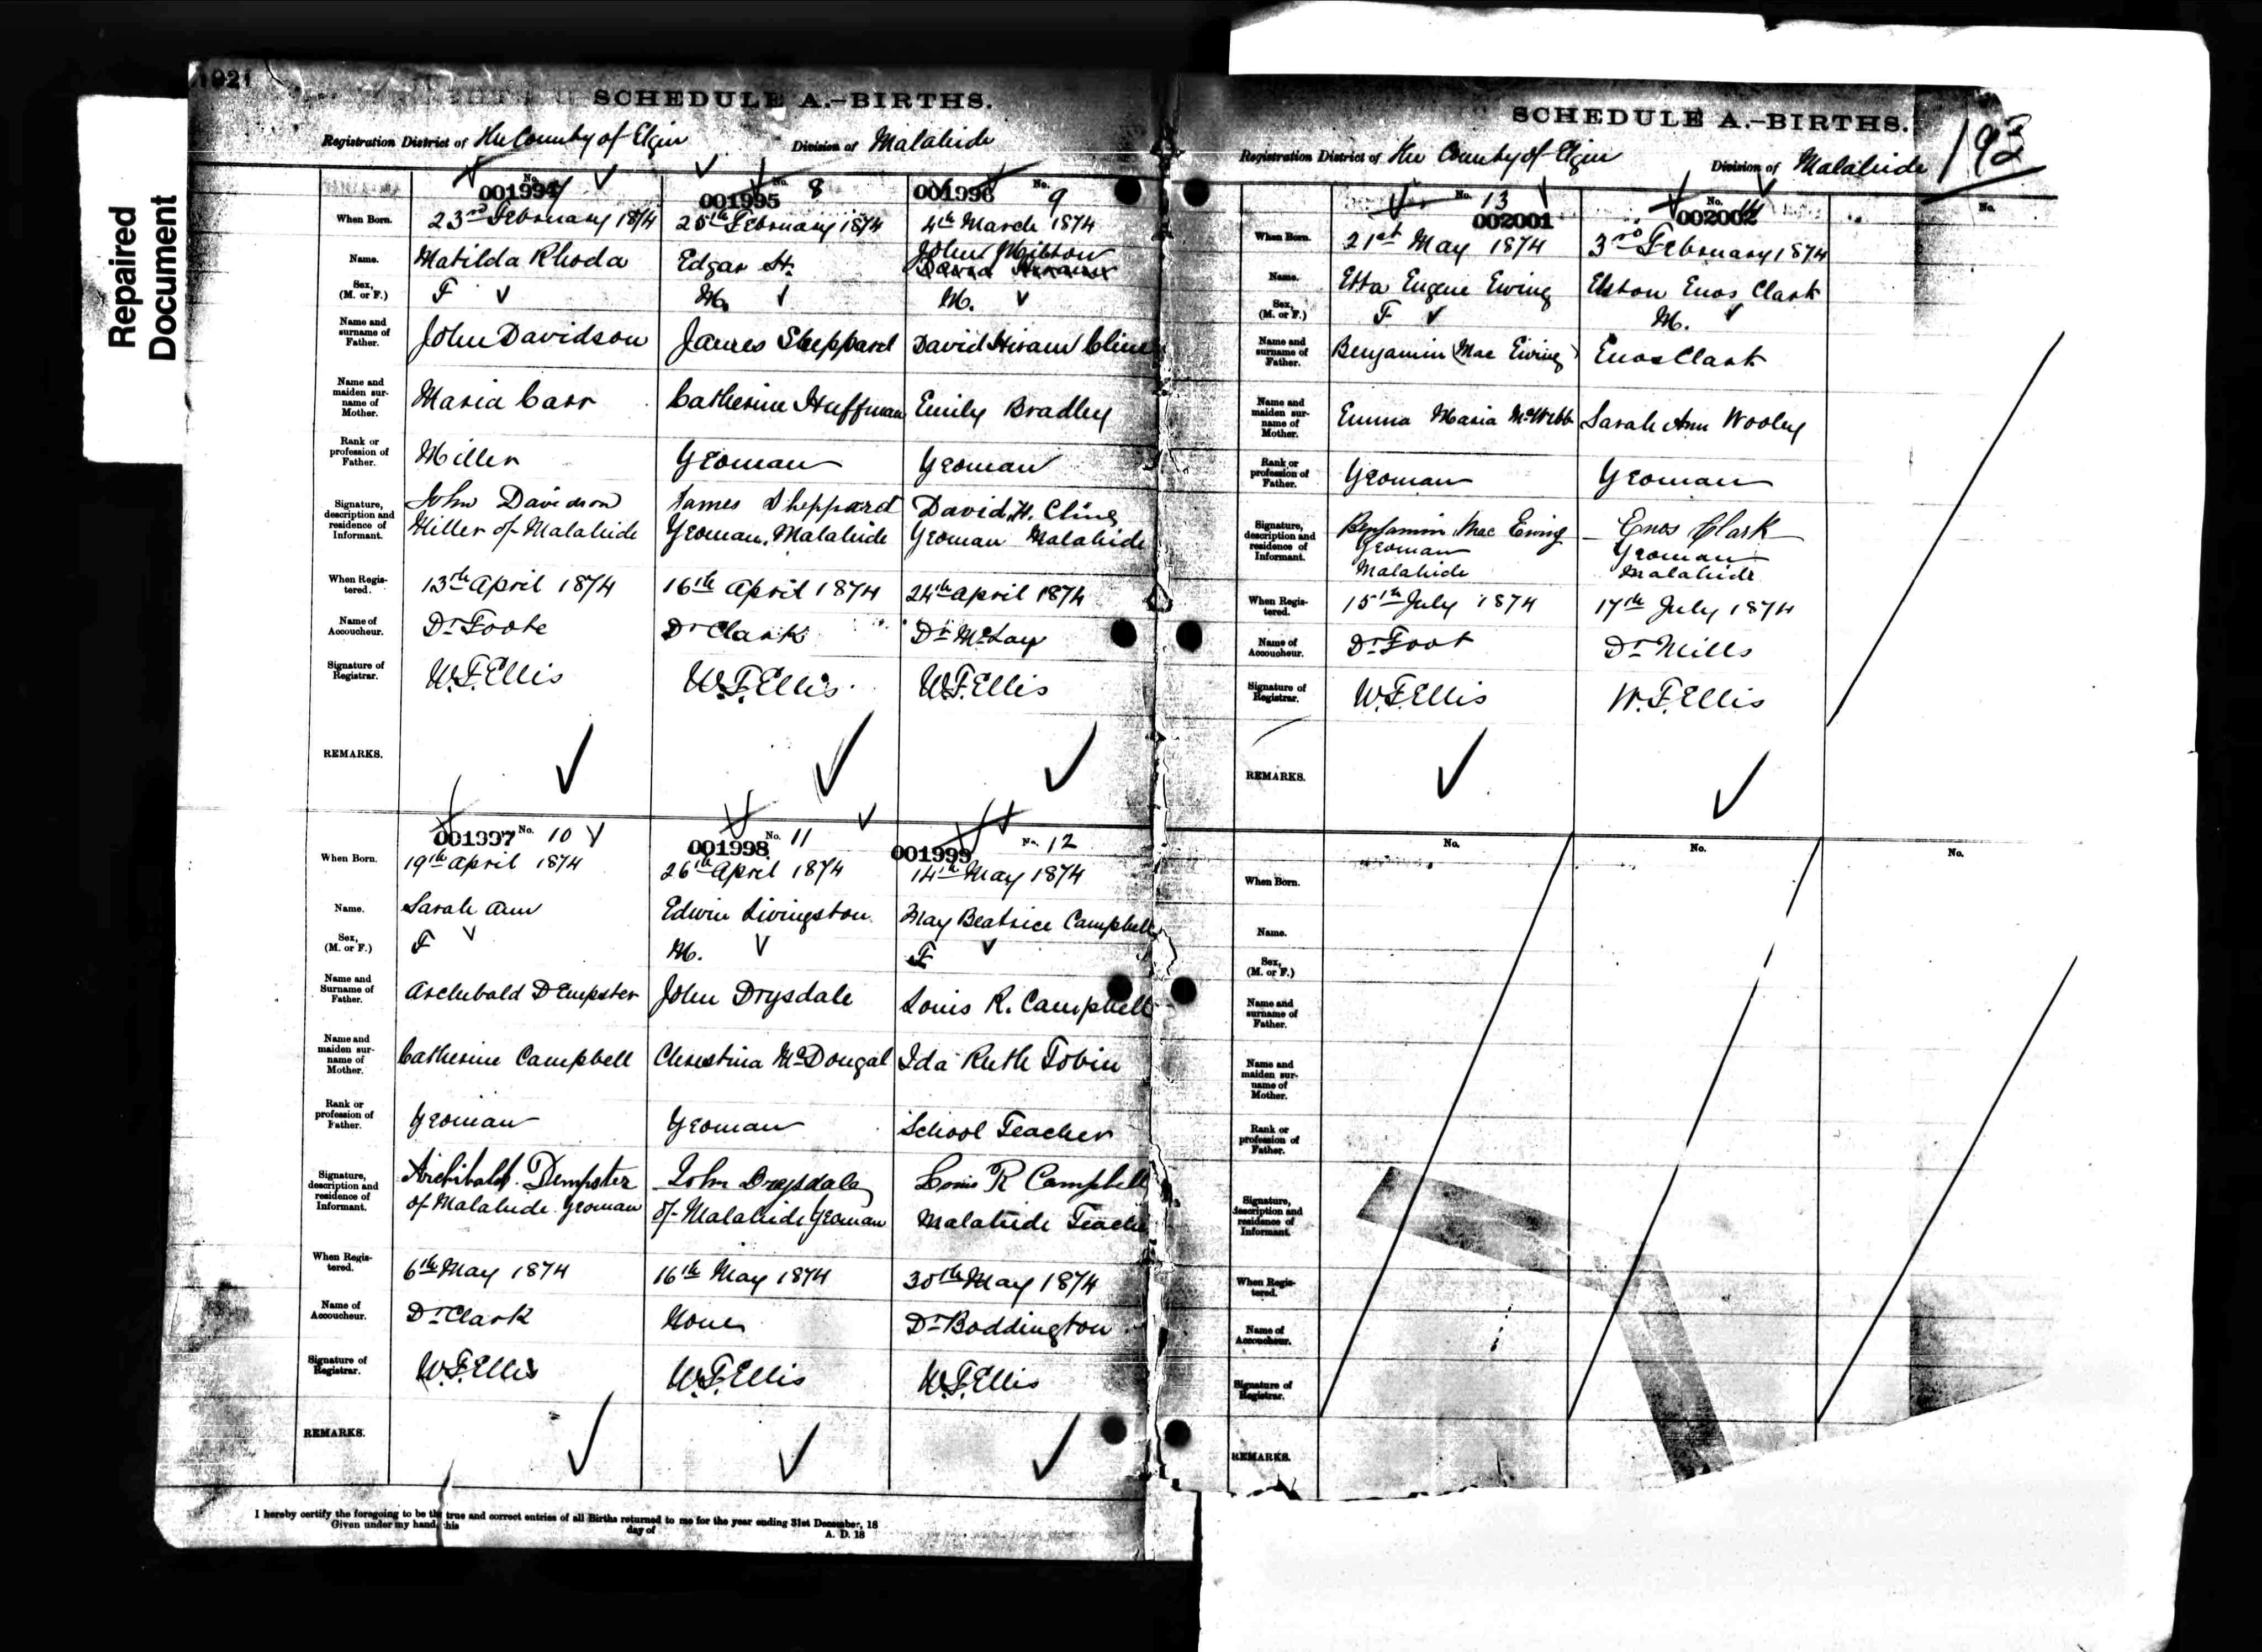 Repaired
Document
SCHEDULE A.-BIRTHS.
Registration District of the County of Elgin Division of Malahide
No. 001994 7
When Born. 23rd February 1874
Name. Matilda Rhoda
Sex, (M. or F.) F
Name and surname of Father. John Davidson
Name and maiden surname of Mother. Maria Carr
Rank or profession of Father. Miller
Signature, description and residence of Informant. John Davidson
Miller of Malahide
When Registered. 13th April 1874
Name of Accoucheur. Dr Foote
Signature of Registrar. W.F. Ellis
REMARKS.
No. 8
001995
25th February 1874
Edgar H.
M.
James Sheppard
Catherine Huffman
Yeoman
James Sheppard
Yeoman, Malahide
16th April 1874
Dr Clark
W.F. Ellis
001996 No. 9
4th March 1874
John Milton
M.
David Hiram Cline
Emily Bradley
Yeoman
David H. Cline
Yeoman Malahide
24th April 1874
Dr McLay
W.F. Ellis
001997 No. 10
When Born. 19th April 1874
Name. Sarah Ann
Sex, (M. or F.) F
Name and Surname of Father. Archibald Dempster
Name and maiden surname of Mother. Catherine Campbell
Rank or profession of Father. Yeoman
Signature, description and residence of Informant. Archibald Dempster
of Malahide Yeoman
When Registered. 6th May 1874
Name of Accoucheur. Dr Clark
Signature of Registrar. W.F. Ellis
REMARKS.
001998 No. 11
26th April 1874
Edwin Livingston
M.
John Drysdale
Christina McDougal
Yeoman
John Drysdale
of Malahide Yeoman
16th May 1874
None
W.F. Ellis
001999 No. 12
14th May 1874
May Beatrice Campbell
F
Louis R. Campbell
Ida Ruth Tobin
School Teacher
Louis R Campbell
Malahide Teacher
30th May 1874
Dr Boddington
W.F. Ellis
I hereby certify the foregoing to be the true and correct entries of all Births returned to me for the year ending 31st December, 18
Given under my hand, this day of A. D. 18
SCHEDULE A.-BIRTHS.
193
Registration District of the County of Elgin Division of Malahide
No. 13
002001
When Born. 21st May 1874
Name. Etta Eugene Ewing
Sex, (M. or F.) F
Name and surname of Father. Benjamin Mac Ewing
Name and maiden surname of Mother. Emma Maria McWebb
Rank or profession of Father. Yeoman
Signature, description and residence of Informant. Benjamin Mac Ewing
Yeoman
Malahide
When Registered. 15th July 1874
Name of Accoucheur. Dr Foot
Signature of Registrar. W.F. Ellis
REMARKS.
No. 14
002002
3rd February 1874
Elston Enos Clark
M.
Enos Clark
Sarah Ann Wooley
Yeoman
Enos Clark
Yeoman
Malahide
17th July 1874
Dr Mills
W.F. Ellis
No.
No.
No.
No.
When Born.
Name.
Sex, (M. or F.)
Name and surname of Father.
Name and maiden surname of Mother.
Rank or profession of Father.
Signature, description and residence of Informant.
When Registered.
Name of Accoucheur.
Signature of Registrar.
REMARKS.